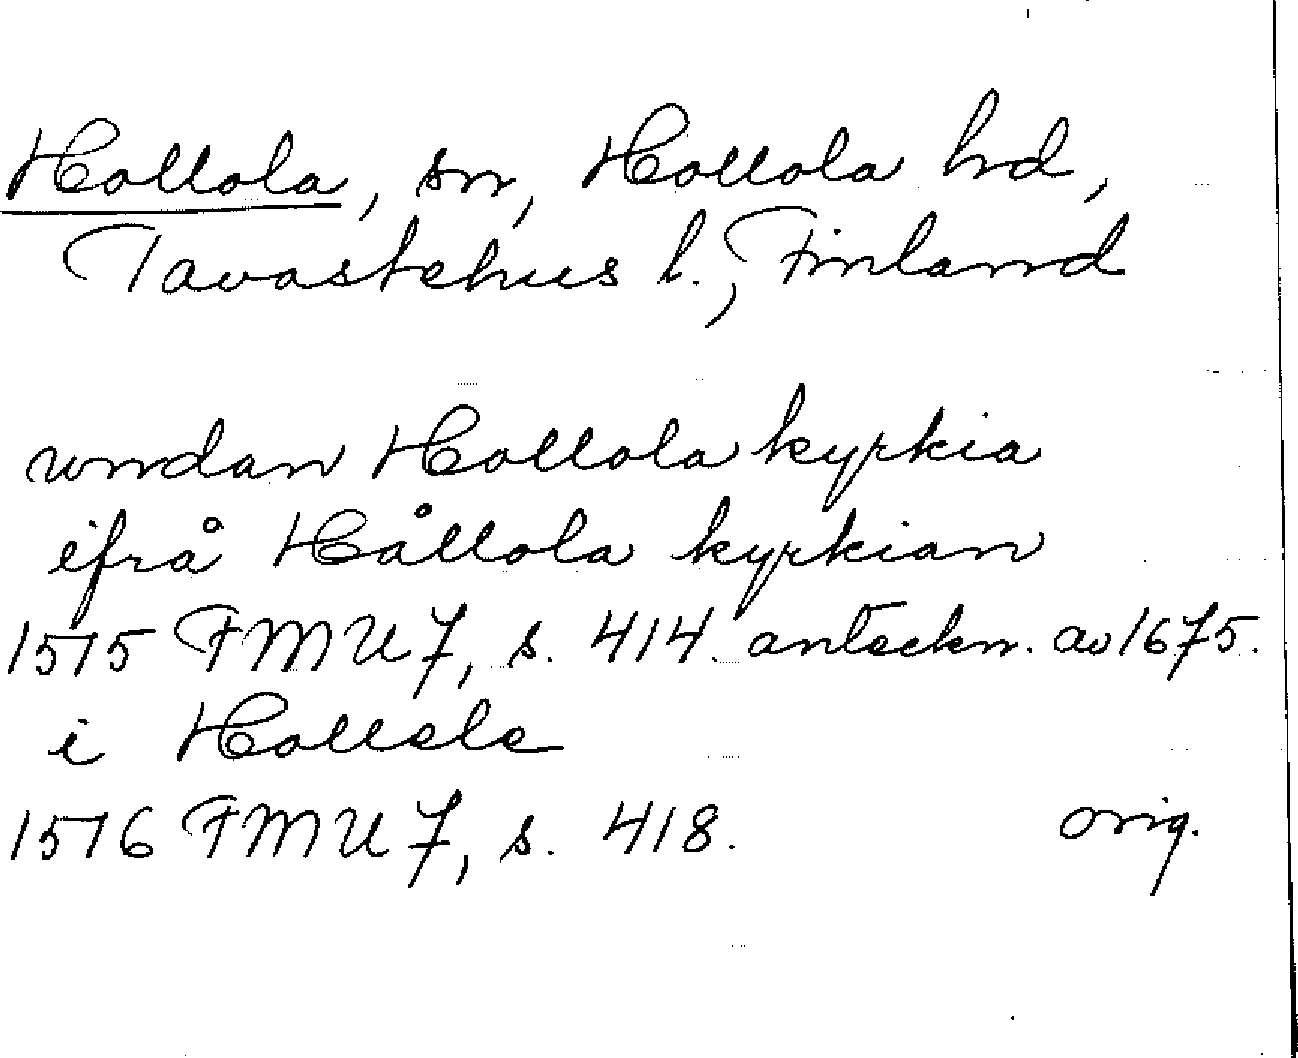 Hollola, sn, Hollola hrd,
Tavastehus l., Finland
vndan Hollola kyrkia
ifrå Hållola kyrkian
1515 FMU 7, s. 414. anteckn. av 1675.
i Hollele
1516 FMU 7, s. 418. orig.